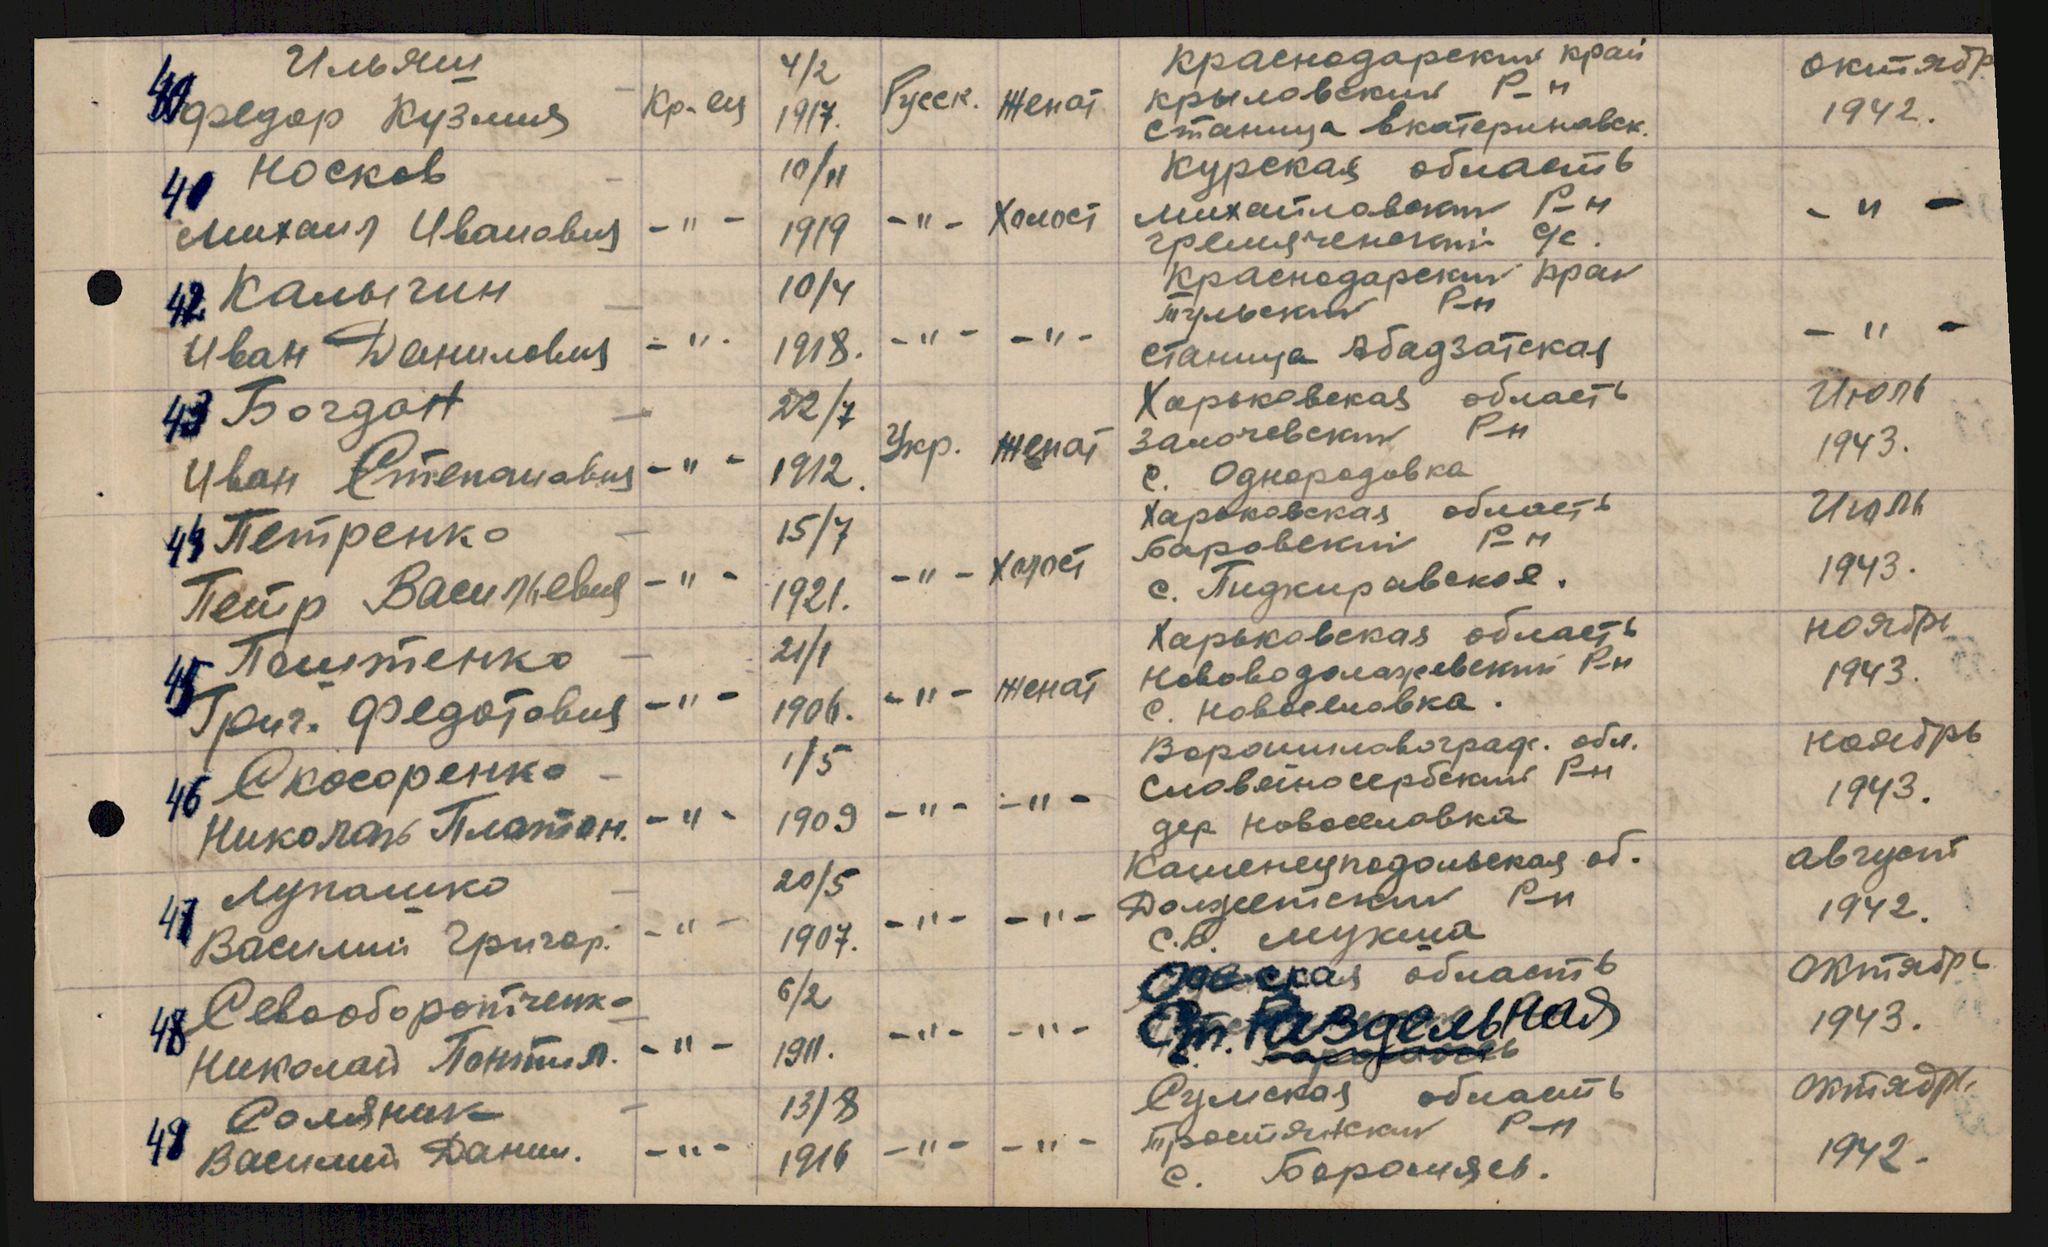 40 Ильяш
Федор Кузмич Кр-ец 4/2 1917. Русск. женат Краснодарский край
Крыловский Р-н
станица Екатериновск. октябр 1942.
41 Носков
Михаил Иванович -"- 10/11 1919 -"- Холост Курская область
Михайловский Р-н
Гремяченский с/с. -"-
42. Калычин
Иван Данилович -"- 10/4 1918. -"- -"- Краснодарский край
Тульский Р-н
станица Абадзатская -"-
43 Богдан
Иван Степанович -"- 22/7 1912. Укр. женат Харьковская область
Залочевский Р-н
с. Однородовка Июль 1943.
44 Петренко
Петр Васильевич -"- 15/7 1921. -"- Холост Харьковская область
Баровский Р-н
с. Пидкиравское. Июль 1943.
45 Поштенко
Григ. Федотович -"- 21/1 1906. -"- женат Харьковская область
Нововодолажевский Р-н
с. Новоселовка. ноябрь 1943.
46 Скосоренко
Николай Платон. -"- 1/5 1909 -"- -"- Ворошиловоград. обл.
Словяносербский Р-н
дер Новоселовка ноябрь 1943.
47 Лупашко
Василий Григор. -"- 20/5 1907. -"- -"- Каменецподольская об.
Р-н
Мукша август 1942.
48 Севооборотченко
Николай Пантил. -"- 6/2 1911. -"- -"- Одесская область
Ст. Раздельная октябрь 1943.
49 Соляник
Василий Данил. -"- 13/8 1916 -"- -"- Сумская область
Тростянский Р-н
с. Боромяев. октябр. 1942.